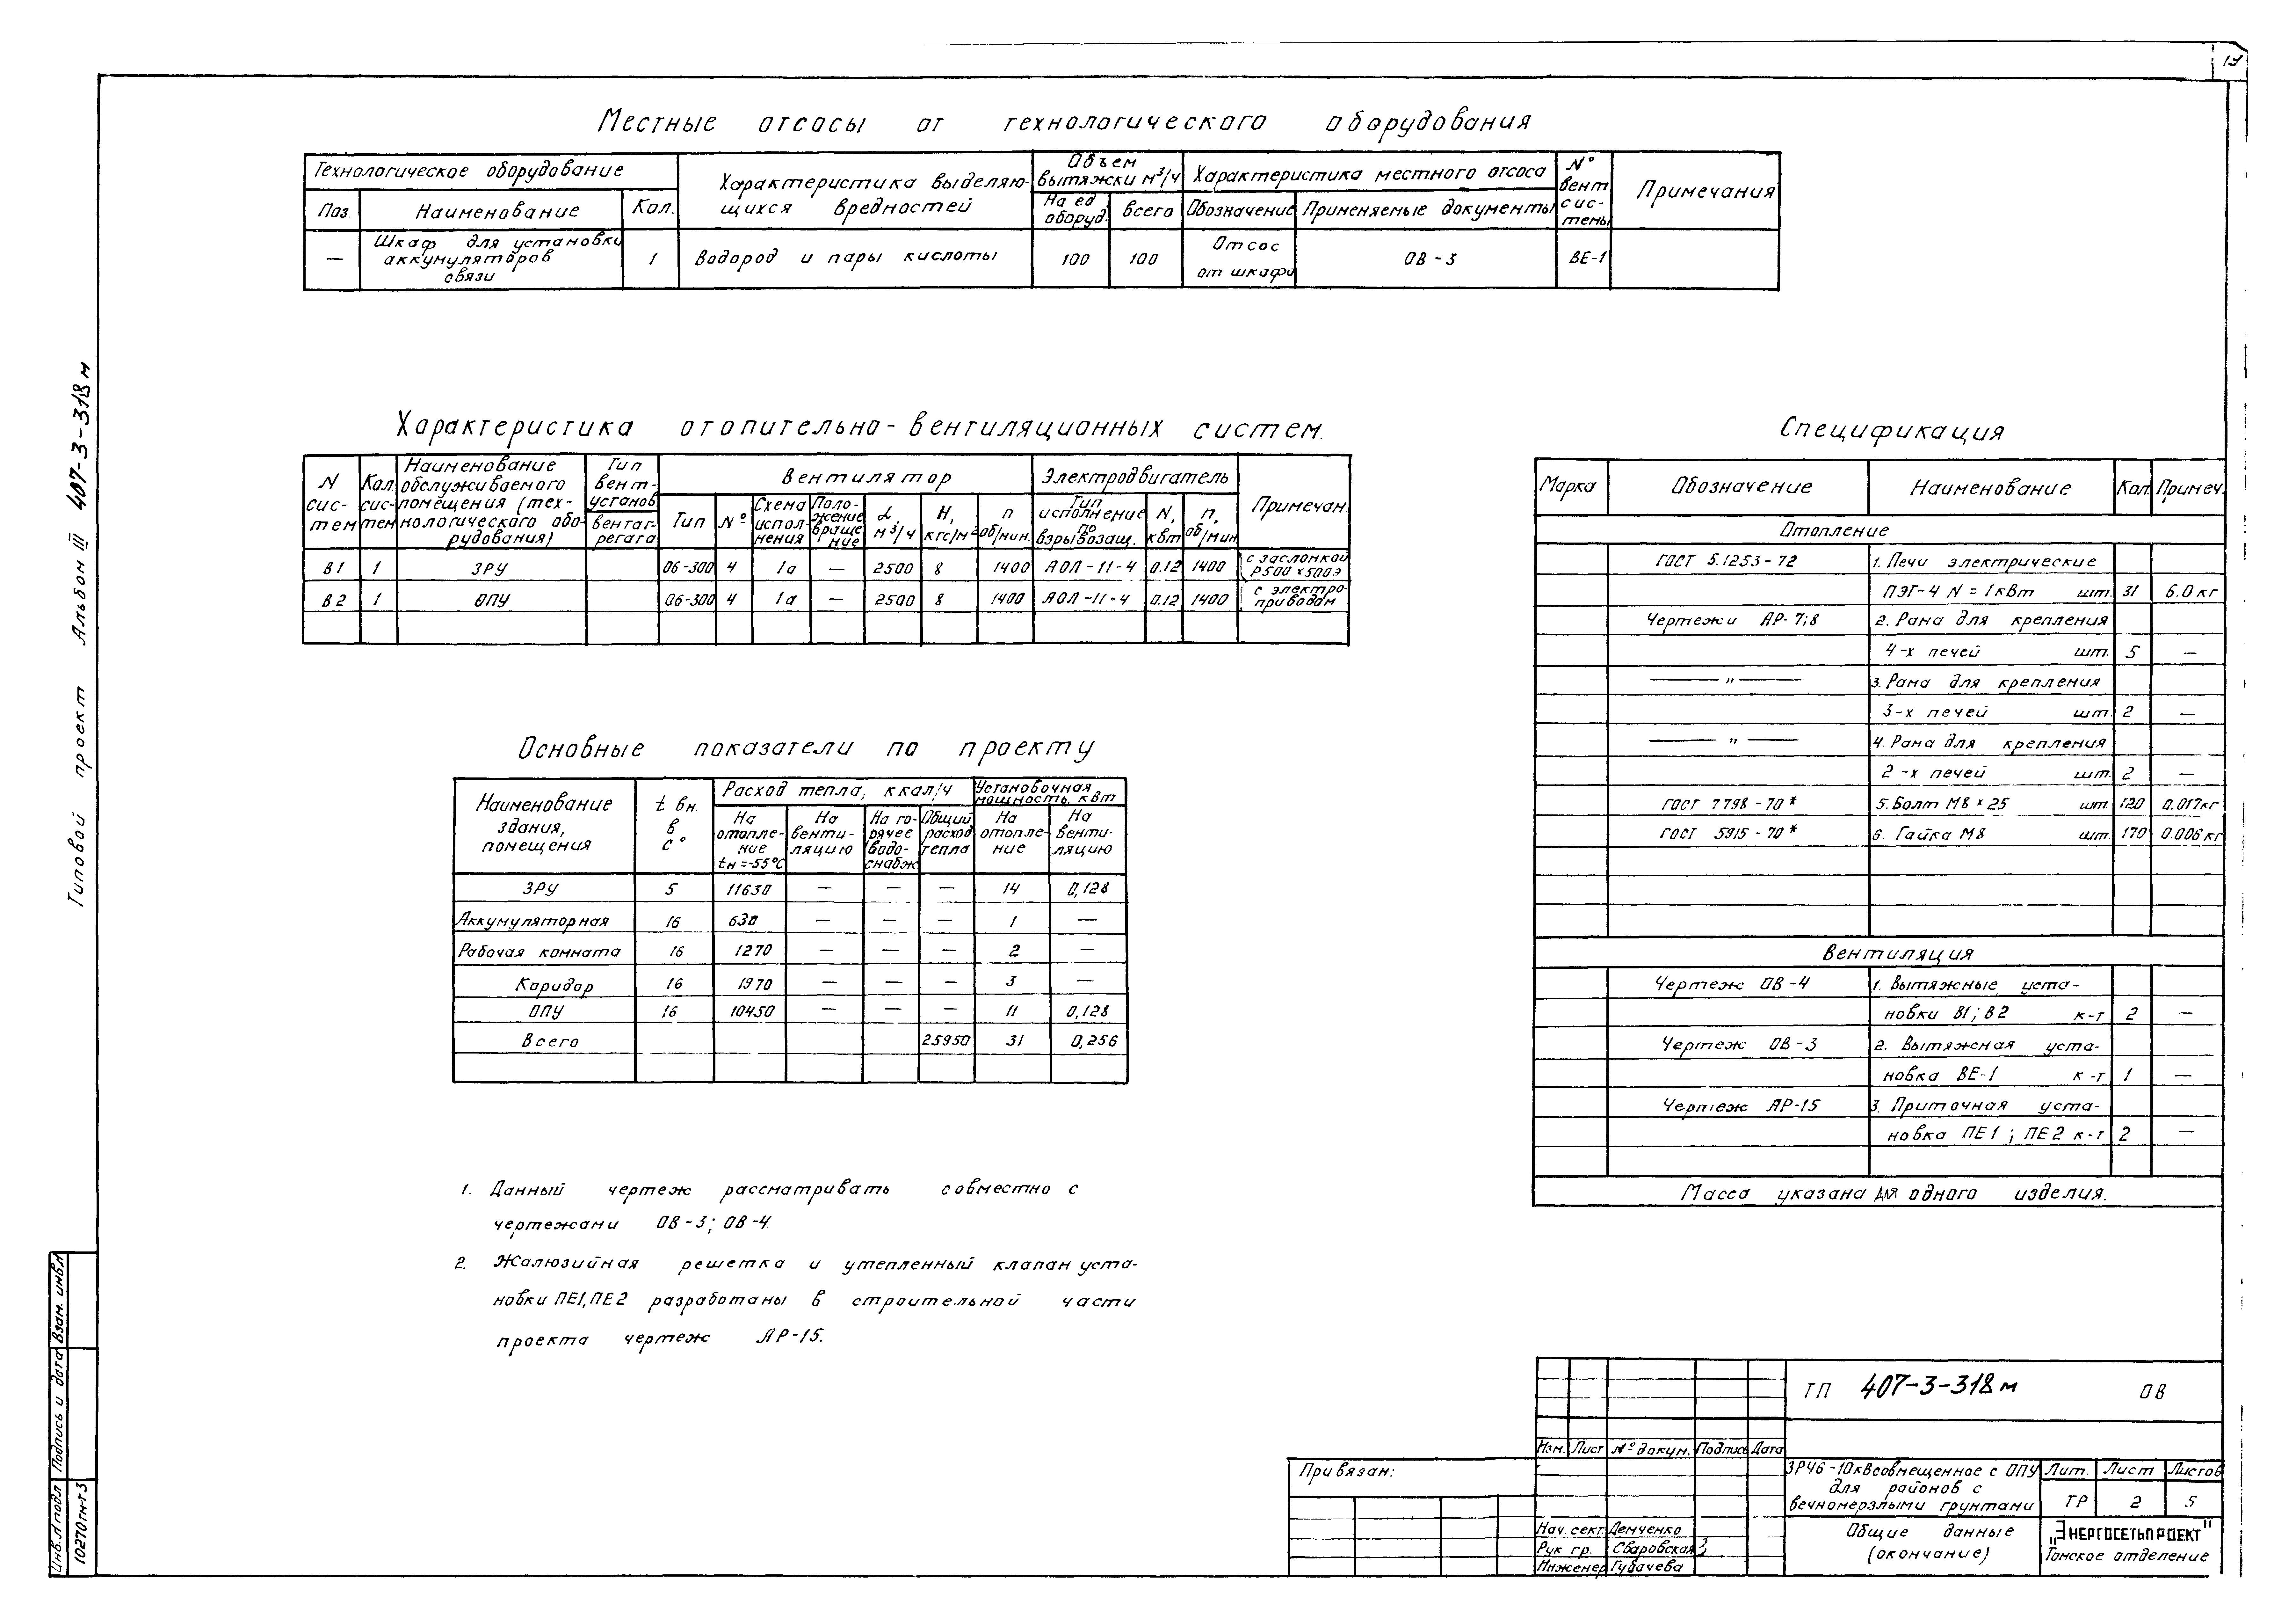 Местные отсосы от технологического оборудования
Технологическое оборудование
Поз.
Наименование
Кол.
Характеристика выделяю-
щихся вредностей
Объем
вытяжки м³/ч
На ед
оборуд.
всего
Характеристика местного отсоса
Обозначение
Применяемые документы
N°
вент
сис-
темы
Примечания
—
Шкаф для установки
аккумуляторов
связи
1
Водород и пары кислоты
100
100
Отсос
от шкафа
ОВ-3
ВЕ-1
Характеристика отопительно-вентиляционных систем.
N
сис-
тем
Кол.
сис-
тем
Наименование
обслуживаемого
помещения (тех-
нологического обо-
рудования)
Тип
вент-
установ.
вентаг-
регата
Вентилятор
Тип
N°
Схема
испол-
нения
Поло-
жение
враще
ние
L,
м³/ч
H,
кгс/м²
п
об/мин.
Электродвигатель
Тип
исполнение
по
взрывозащ.
N,
квт
п.
об/мин
Примечан.
В1 1 ЗРУ 06-300 4 1а — 2500 8 1400 АОЛ-11-4 0.12 1400 с заслонкой
Р500×500Э
В2 1 ОПУ 06-300 4 1а — 2500 8 1400 АОЛ-11-4 0.12 1400 с электро-
приводом
Основные показатели по проекту
Наименование
здания,
помещения
t вн.
в
с°
Расход тепла, ккал/ч
На
отопле-
ние
tн=-55°С
На
венти-
ляцию
На го-
рячее
водо-
снабж.
Общий
расход
тепла
Установочная
мощность, квт
На
отопле-
ние
На
венти-
ляцию
ЗРУ 5 11630 — — — 14 0,128
Аккумуляторная 16 630 — — — 1 —
Рабочая комната 16 1270 — — — 2 —
Коридор 16 1970 — — — 3 —
ОПУ 16 10450 — — — 11 0,128
Всего 25950 31 0,256
1. Данный чертеж рассматривать совместно с
чертежами ОВ-3; ОВ-4.
2. Жалюзийная решетка и утепленный клапан уста-
новки ПЕ1, ПЕ2 разработаны в строительной части
проекта чертеж АР-15.
Спецификация
Марка Обозначение Наименование Кол. Примеч.
Отопление
ГОСТ 5.1253-72 1. Печи электрические
ПЭТ-4 N=1квт шт. 31 6.0 кг
Чертежи АР-7;8 2. Рама для крепления
4-х печей шт. 5 —
— " — 3. Рама для крепления
3-х печей шт 2 —
— " — 4. Рама для крепления
2-х печей шт. 2 —
ГОСТ 7798-70* 5. Болт М8×25 шт. 120 0.017кг
ГОСТ 5915-70* 6. Гайка М8 шт. 170 0.006кг
Вентиляция
Чертеж ОВ-4 1. Вытяжные уста-
новки В1; В2 к-т 2 —
Чертеж ОВ-3 2. Вытяжная уста-
новка ВЕ-1 к-т 1 —
Чертеж АР-15 3. Приточная уста-
новка ПЕ1; ПЕ2 к-т 2 —
Масса указана для одного изделия.
Типовой проект Альбом III 407-3-318м
Инв.N подл
Подпись и дата
Взам. инв.N
10270тм-т3
Привязан:
Изм. Лист N° докум. Подпись Дата
Нач. сект. Демченко
Рук гр. Сваровская
Инженер Губачева
ТП 407-3-318м ОВ
ЗРУ6-10кВ совмещенное с ОПУ
для районов с
вечномерзлыми грунтами
Лит. Лист Листов
ТР 2 5
Общие данные
(окончание)
"Энергосетьпроект"
Томское отделение